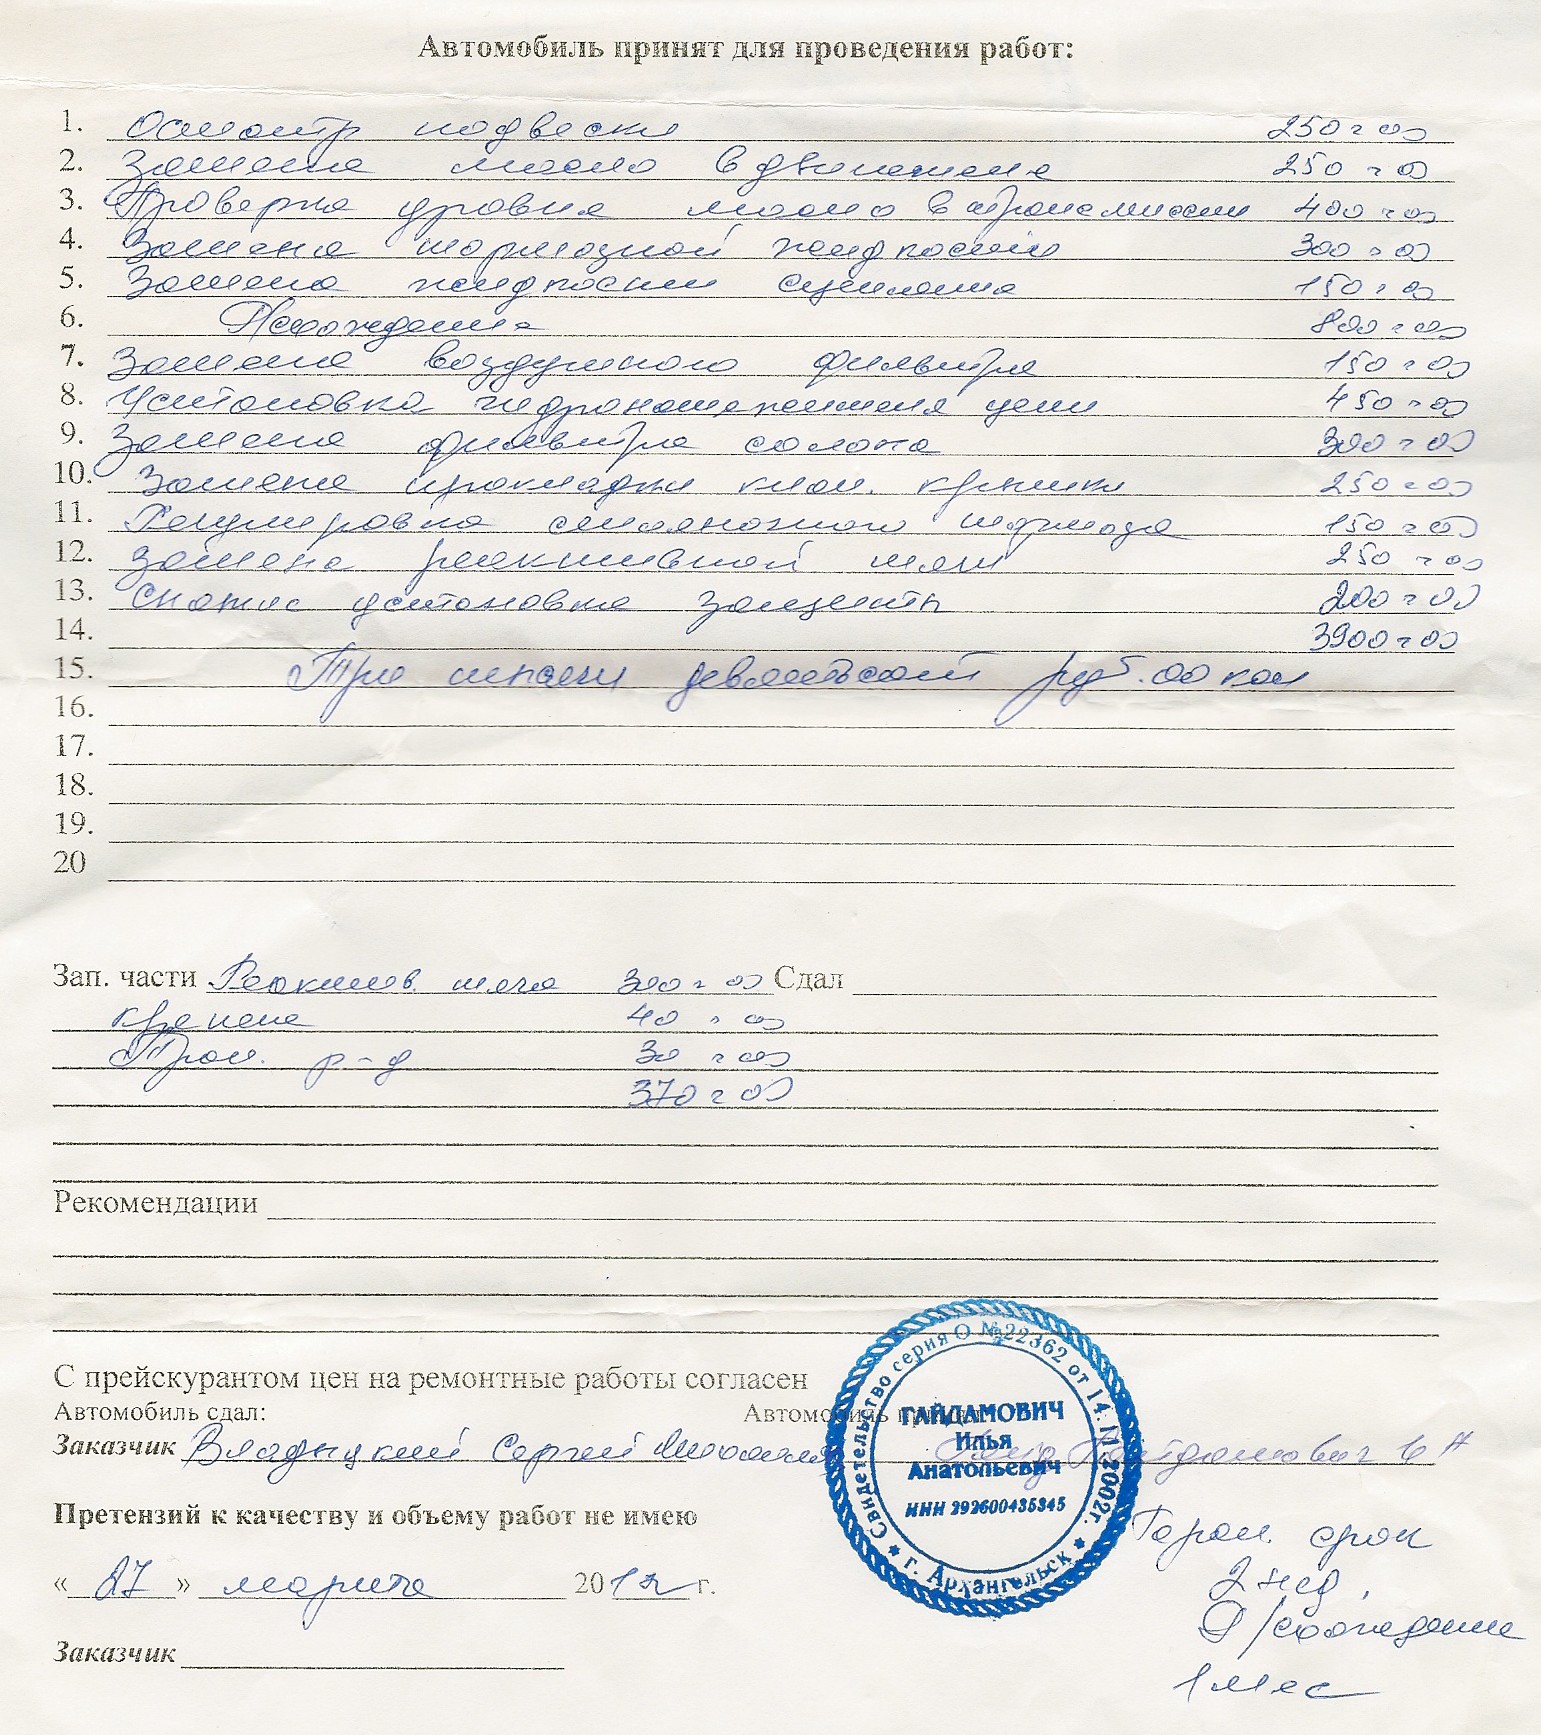 Автомобиль принят для проведения работ:
1. Осмотр подвески 250=00
2. Замена масло в двигателе 250=00
3. Проверка уровня масло в трансмиссии 400=00
4. Замена тормозной жидкости 300=00
5. Замена жидкости сцепления 150=00
6. Схождение 800=00
7. Замена воздушного фильтра 150=00
8. Установка гидронатяжителя цепи 450=00
9. Замена фильтра салона 300=00
10. Замена прокладки клап. крышки 250=00
11. Регулировка стояночного тормоза 150=00
12. Замена реактивной тяги 250=00
13. Снятие установка защиты 200=00
14. 3900=00
15. Три тысячи девятьсот руб. 00 коп
16.
17.
18.
19.
20
Зап. части Реактив. тяга 300=00 Сдал
крепеж 40=00
р-д 30=00
370=00
Рекомендации
С прейскурантом цен на ремонтные работы согласен
Автомобиль сдал: Автомобиль принял
Заказчик Сергей Гайдамович И А
Свидетельство серия О № 22362 от 14.11.2002г.
ГАЙДАМОВИЧ
Илья
Анатольевич
ИНН 292600435345
г. Архангельск
Претензий к качеству и объему работ не имею
« 27 » марта 2012 г.
Заказчик
Гаран. срок
2 нед.
схождение
1 мес